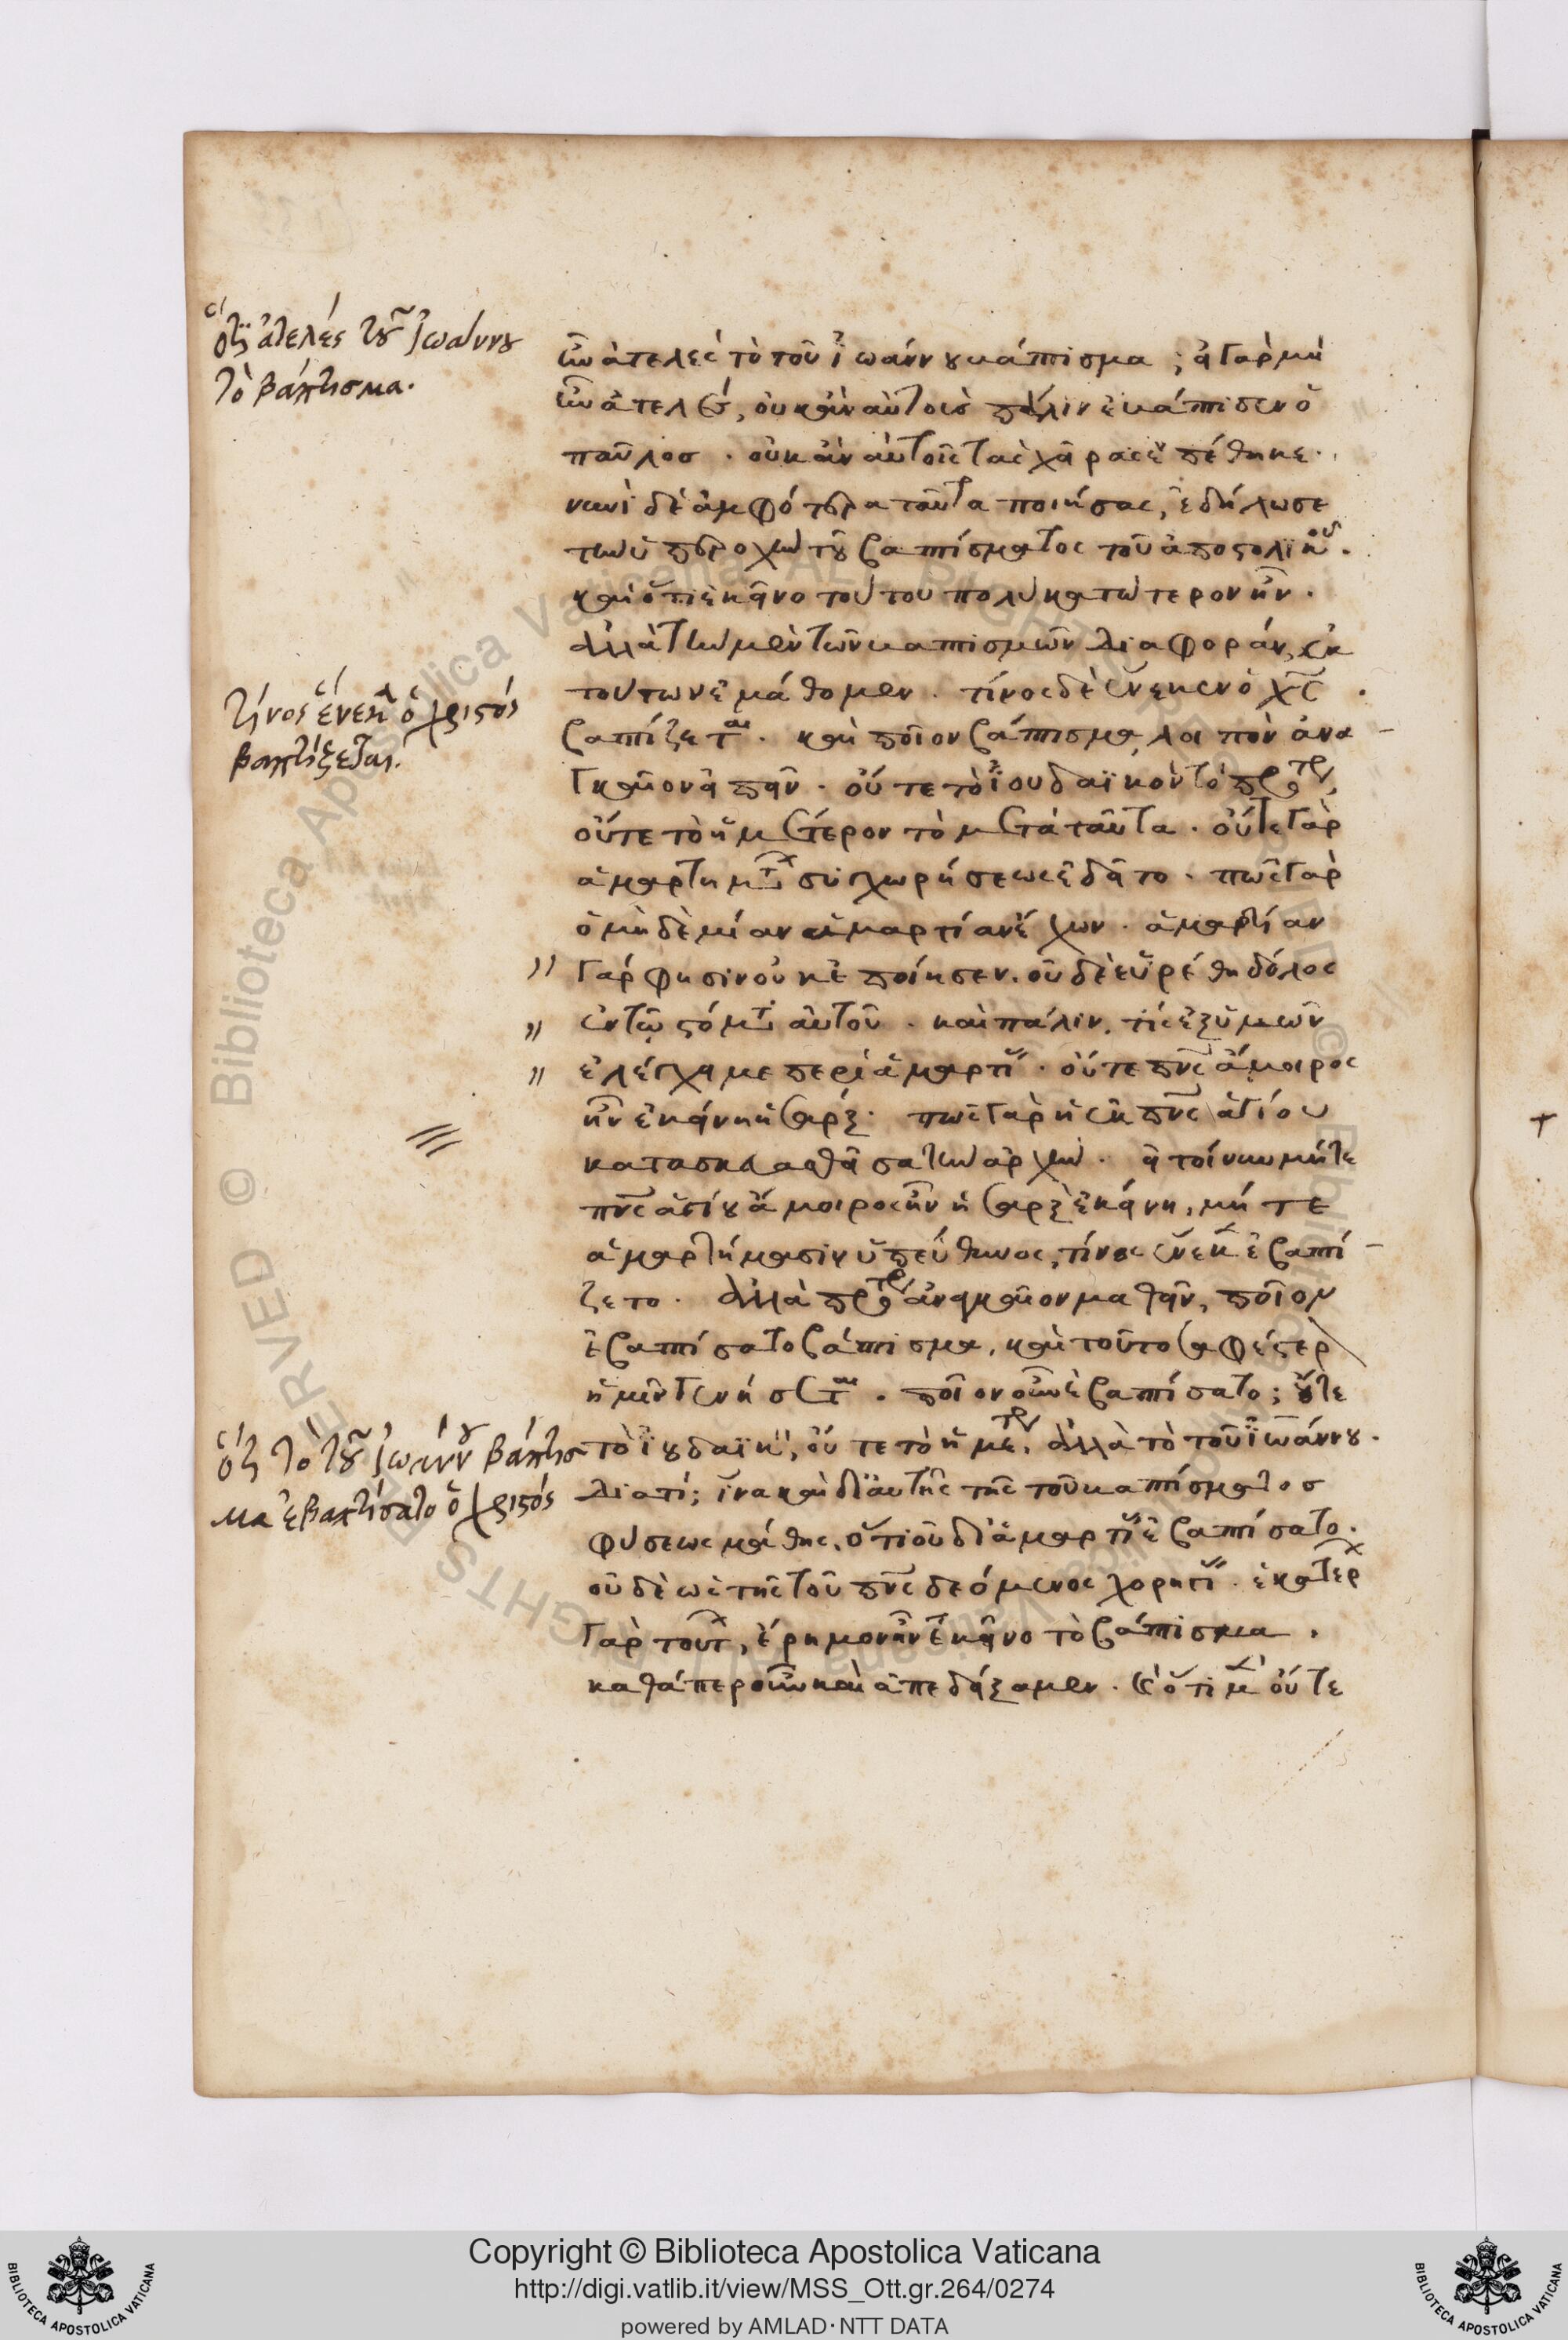 ὅτι ἀτελές τοῦ Ἰωάννου
τὸ βάπτισμα.
ἦν ἀτελὲς τὸ τοῦ ἰωάννου βάπτισμα; εἰ γὰρ μὴ
ἦν ἀτελές, οὐκ ἂν αὐτοὺς πάλιν ἐβάπτισεν ὁ
παῦλος. οὐκ ἂν αὐτοῖς τὰς χεῖρας ἐπέθηκε.
νυνὶ δὲ ἀμφότερα ταῦτα ποιήσας, ἐδήλωσε
τὴν ὑπεροχὴν τοῦ βαπτίσματος τοῦ ἀποστολικοῦ.
καὶ ὅτι ἐκεῖνο τούτου πολὺ κατώτερον ἦν.
ἀλλὰ τὴν μὲν τῶν βαπτισμῶν διαφοράν, ἐκ
τούτων ἐμάθομεν. τίνος δὲ ἕνεκεν ὁ χς
τίνος ἕνεκεν ὁ χριστός
βαπτίζεται.
βαπτίζεται. καὶ ποῖον βάπτισμα, λοιπὸν ἀνα-
γκαῖον εἰπεῖν. οὔτε τὸ ἰουδαϊκὸν τὸ πρότερον,
οὔτε τὸ ἡμέτερον τὸ μετὰ ταῦτα. οὔτε γὰρ
ἁμαρτημάτων συγχωρήσεως ἐδεῖτο. πῶς γὰρ
ὁ μηδὲ μίαν ἁμαρτίαν ἔχων. ἁμαρτίαν
" γάρ φησιν οὐκ ἐποίησεν. οὐδὲ εὑρέθη δόλος
" ἐν τῷ στόματι αὐτοῦ. καὶ πάλιν. τίς ἐξ ὑμῶν
" ἐλέγχει με περὶ ἁμαρτίας. οὔτε πνς ἄμοιρος
ἦν ἐκείνη ἡ σάρξ. πῶς γὰρ ἡ ἐκ πνς ἁγίου
κατασκευασθεῖσα τὴν ἀρχήν. εἰ τοίνυν μήτε
πνς ἁγίου ἄμοιρος ἦν ἡ σὰρξ ἐκείνη, μήτε
ἁμαρτήμασιν ὑπεύθυνος, τίνος ἕνεκεν ἐβαπτί-
ζετο. ἀλλὰ πρότερον ἀναγκαῖον μαθεῖν, ποῖον
ἐβαπτίσατο βάπτισμα, καὶ τοῦτο σαφέστερον
ἡμῖν γενήσεται. ποῖον οὖν ἐβαπτίσατο; οὔτε
ὅτι τὸ τοῦ Ἰωάννου βάπτισ
μα ἐβαπτίσατο ὁ χριστός
τὸ ἰουδαϊκόν, οὔτε τὸ ἡμέτερον, ἀλλὰ τὸ τοῦ ἰωάννου.
διατί; ἵνα καὶ δι' αὐτῆς τῆς τοῦ βαπτίσματος
φύσεως μάθῃς, ὅτι οὐ δι' ἁμαρτίαν ἐβαπτίσατο.
οὐδὲ ὡς τῆς τοῦ πνς δεόμενος χορηγίας. ἑκατέρων
γὰρ τούτων, ἔρημον ἦν ἐκεῖνο τὸ βάπτισμα,
καθάπερ οὖν καὶ ἀπεδείξαμεν. καὶ ὅτι μὲν οὔτε
Copyright © Biblioteca Apostolica Vaticana
http://digi.vatlib.it/view/MSS_Ott.gr.264/0274
powered by AMLAD·NTT DATA